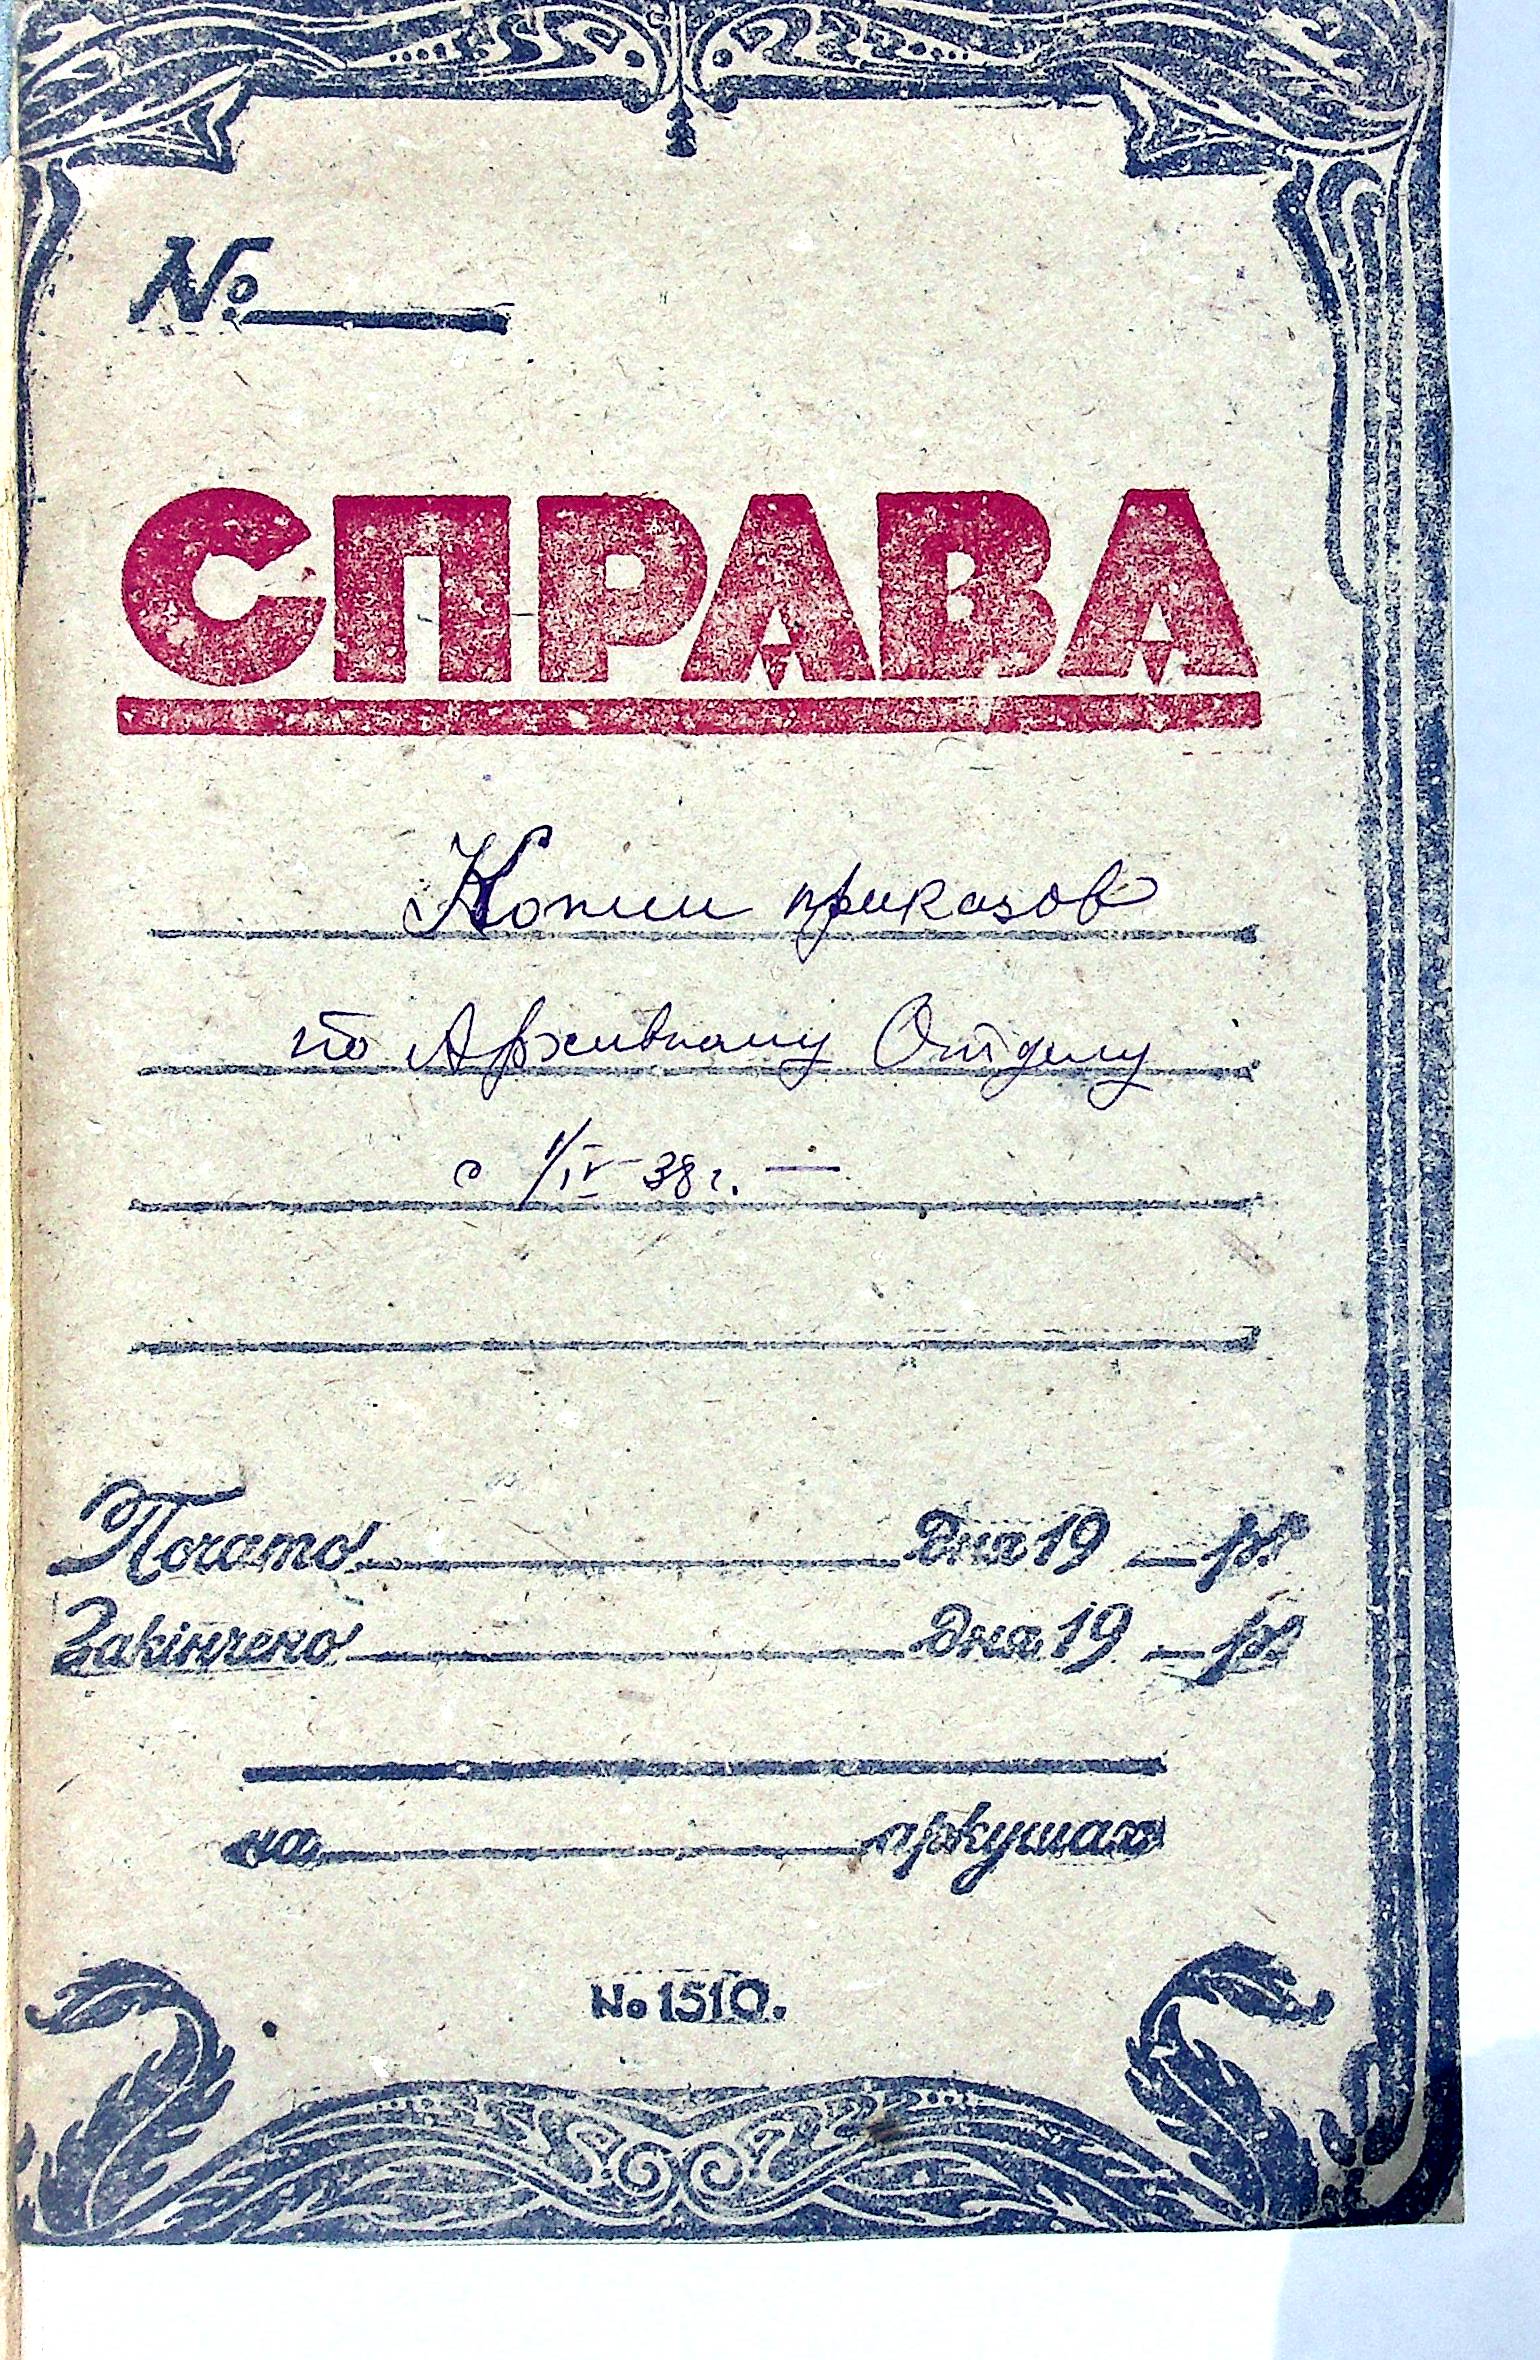 №
СПРАВА
Копии приказов
по Архивному Отделу
с 1/IV-38 г. —
Почато дня 19 р.
Закінчено дня 19 р.
на аркушах
№ 1510.